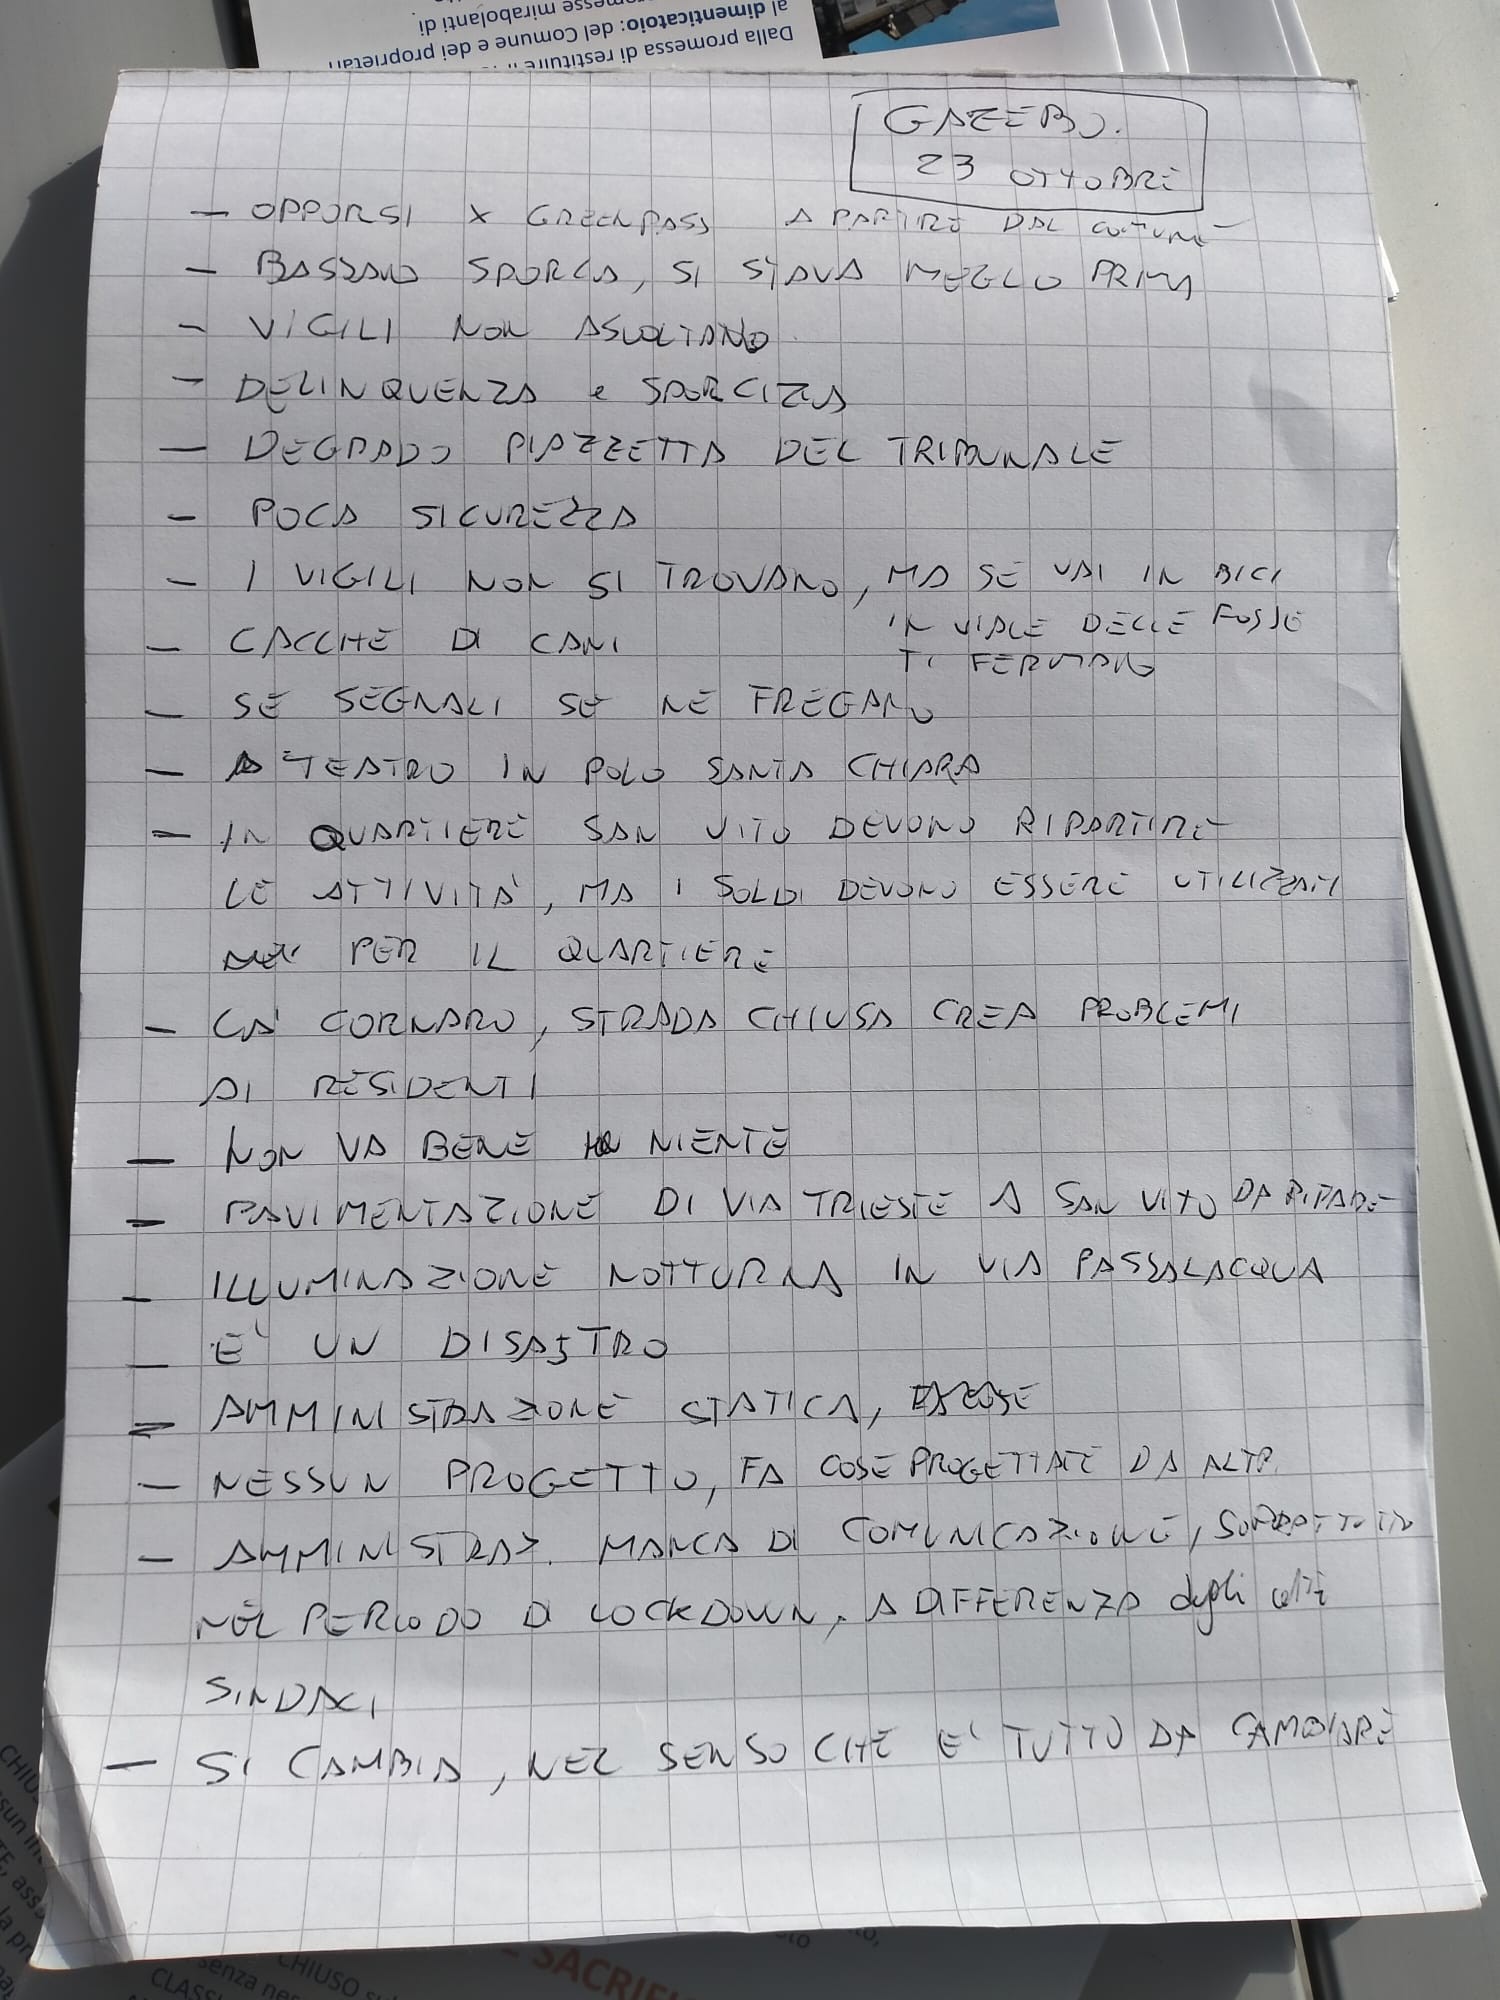 Dalla promessa di restituire il
al dimenticatoio: del Comune e dei proprietari
messe mirabolanti di
GAZEBO.
23 OTTOBRE
- OPPORSI X GREENPASS A PARTIRE DAL COMUNE
- BASSANO SPORCA, SI STAVA MEGLIO PRIMA
- VIGILI NON ASCOLTANO
- DELINQUENZA e SPORCIZIA
- DEGRADO PIAZZETTA DEL TRIBUNALE
- POCA SICUREZZA
- I VIGILI NON SI TROVANO, MA SE VAI IN BICI
IN VIALE DELLE FOSSE
TI FERMANO
- CACCHE DI CANI
- SE SEGNALI SE NE FREGANO
- TEATRO IN POLO SANTA CHIARA
- IN QUARTIERE SAN VITO DEVONO RIPARTIRE
LE ATTIVITÀ, MA I SOLDI DEVONO ESSERE UTILIZZATI
PER IL QUARTIERE
- CA' CORNARO, STRADA CHIUSA CREA PROBLEMI
AI RESIDENTI
- NON VA BENE NIENTE
- PAVIMENTAZIONE DI VIA TRIESTE A SAN VITO DA RIFARE
- ILLUMINAZIONE NOTTURNA IN VIA PASSALACQUA
- E' UN DISASTRO
- AMMINISTRAZIONE STATICA,
- NESSUN PROGETTO, FA COSE PROGETTATE DA ALTRI
- AMMINISTRAZ. MANCA DI COMUNICAZIONE, SOPRATTUTTO
NEL PERIODO DI LOCKDOWN, A DIFFERENZA degli altri
SINDACI
- SI CAMBIA, NEL SENSO CHE E' TUTTO DA CAMBIARE
CHIUSO
senza
SACRIFI